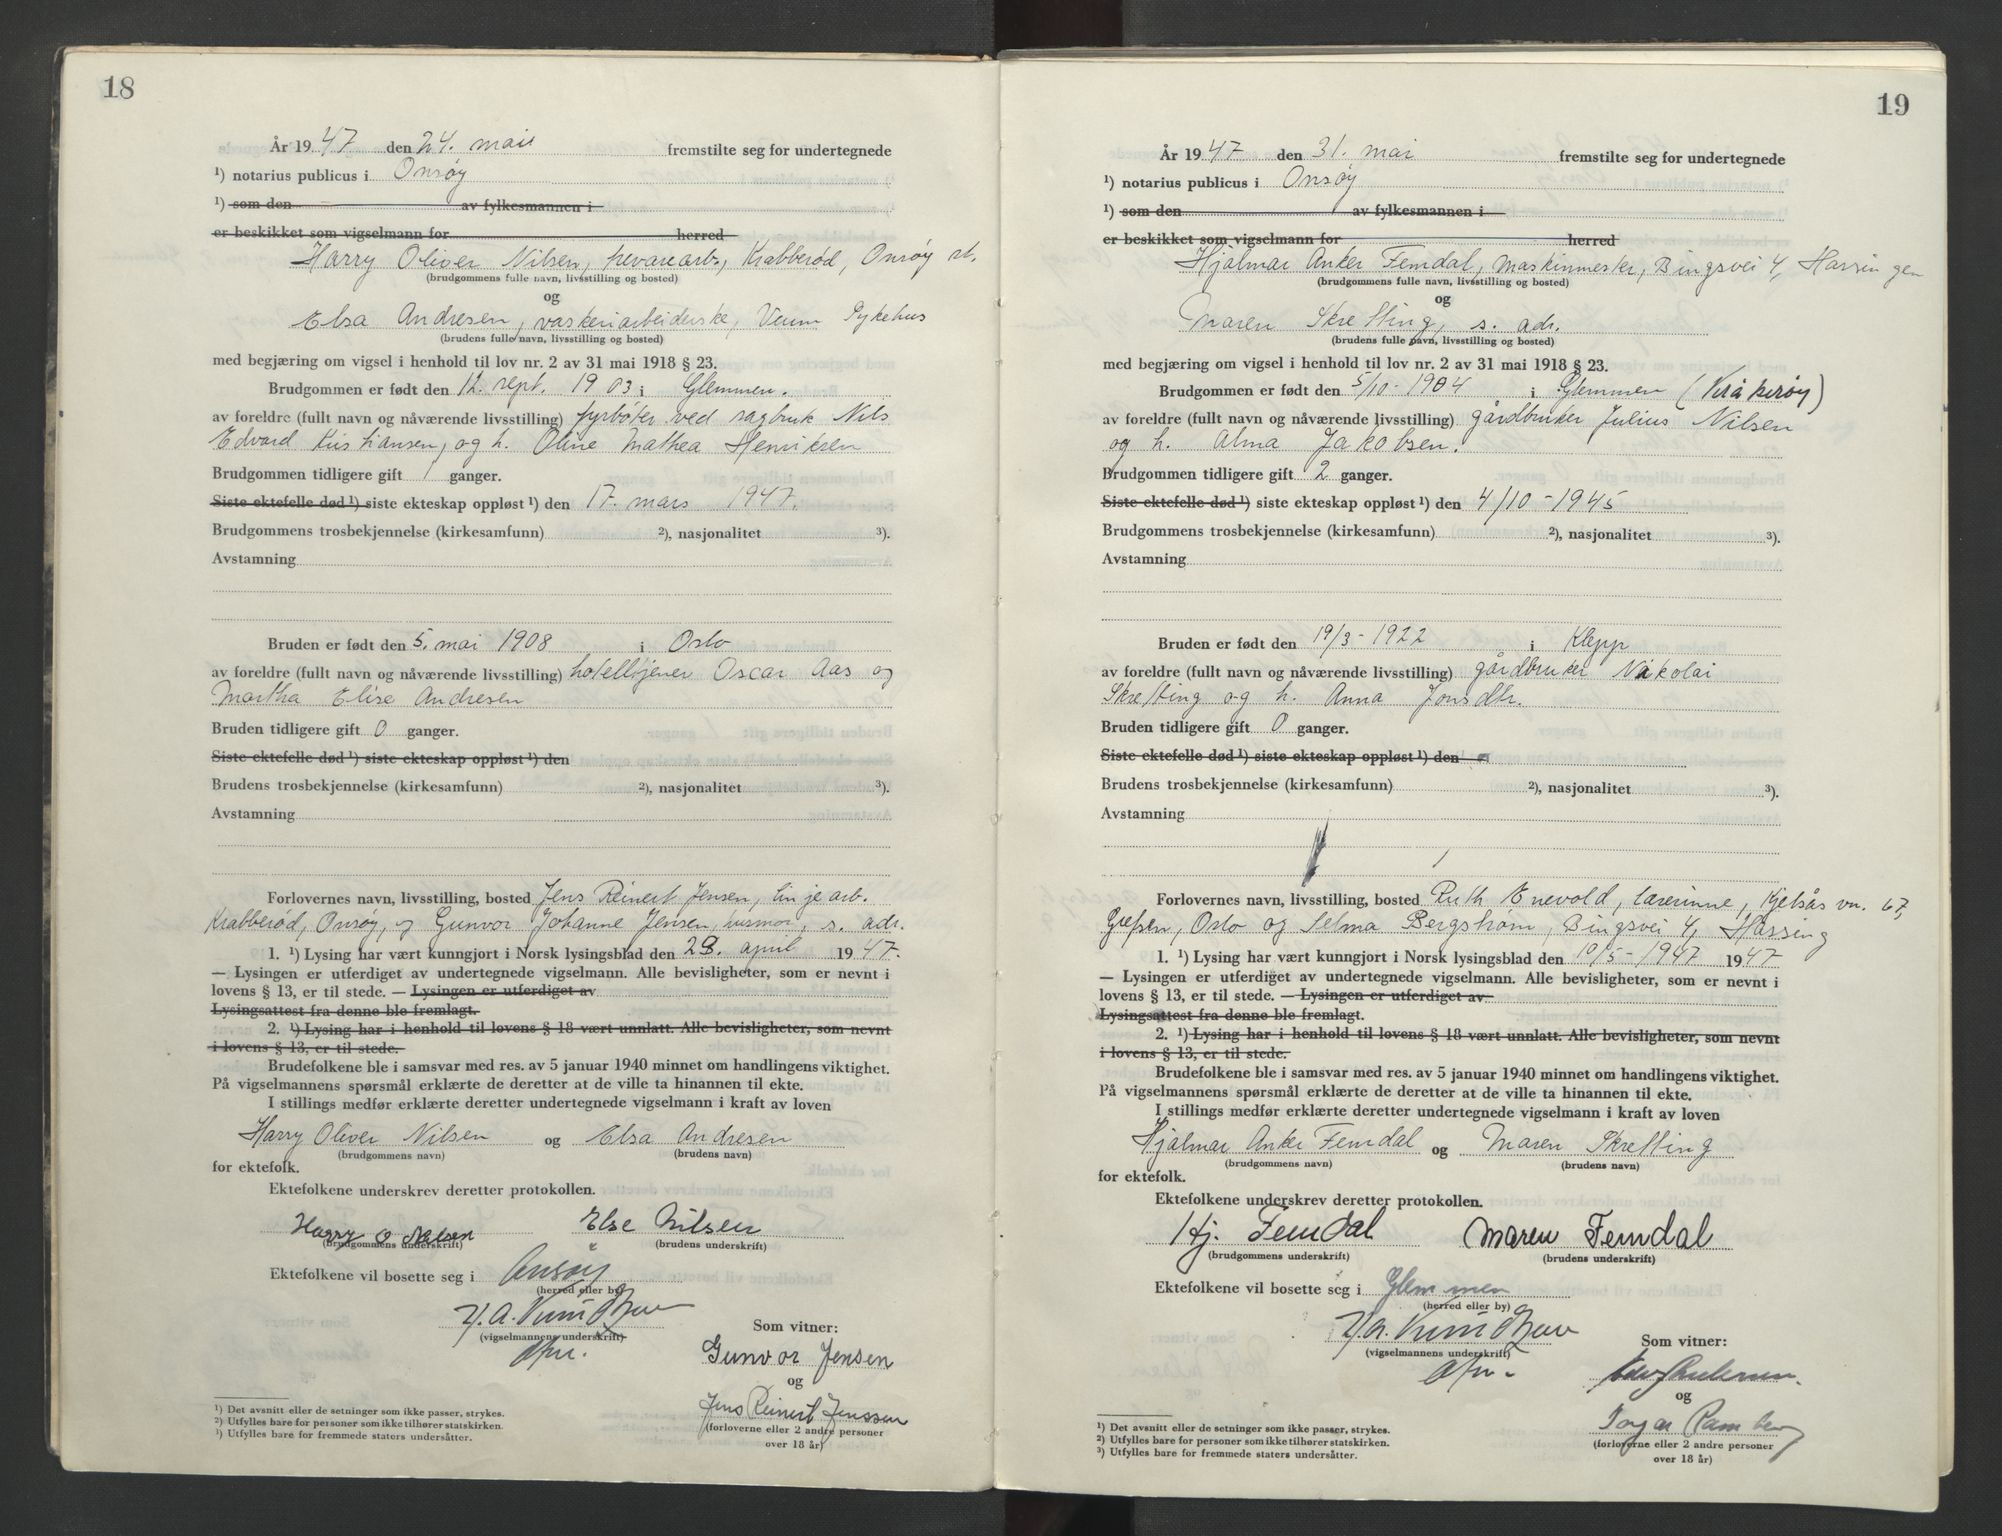 18
År 1947 den 24. mai fremstilte seg for undertegnede
¹) notarius publicus i Onsøy
¹) som den av fylkesmannen i
er beskikket som vigselmann for herred
Harry Oliver Nilsen, Krabberød, Onsøy st.
(brudgommens fulle navn, livsstilling og bosted)
og
Elsa Andresen, vaskeriarbeiderske, Veum Sykehus
(brudens fulle navn, livsstilling og bosted)
med begjæring om vigsel i henhold til lov nr. 2 av 31 mai 1918 § 23.
Brudgommen er født den 12. sept. 1903 i Glemmen.
av foreldre (fullt navn og nåværende livsstilling) fyrbøter ved sagbruk Nils
Edvard Kristiansen, og h. Oline Mathea Henriksen
Brudgommen tidligere gift 1 ganger.
Siste ektefelle død ¹) siste ekteskap oppløst ¹) den 17. mars 1947.
Brudgommens trosbekjennelse (kirkesamfunn) ²), nasjonalitet ³).
Avstamning
Bruden er født den 5. mai 1908 i Oslo
av foreldre (fullt navn og nåværende livsstilling) hotelltjener Oscar Aas og
Martha Elise Andresen
Bruden tidligere gift 0 ganger.
Siste ektefelle død ¹) siste ekteskap oppløst ¹) den
Brudens trosbekjennelse (kirkesamfunn) ²), nasjonalitet ³).
Avstamning
Forlovernes navn, livsstilling, bosted Jens Reinert Jensen, linjearb.
Krabberød, Onsøy, og Gunvor Johanne Jensen, husmor, s. adr.
1. ¹) Lysing har vært kunngjort i Norsk lysingsblad den 28. april 1947.
— Lysingen er utferdiget av undertegnede vigselmann. Alle bevisligheter, som er nevnt i
lovens § 13, er til stede. — Lysingen er utferdiget av
Lysingsattest fra denne ble fremlagt.
2. ¹) Lysing har i henhold til lovens § 18 vært unnlatt. Alle bevisligheter, som nevnt
i lovens § 13, er til stede.
Brudefolkene ble i samsvar med res. av 5 januar 1940 minnet om handlingens viktighet.
På vigselmannens spørsmål erklærte de deretter at de ville ta hinannen til ekte.
I stillings medfør erklærte deretter undertegnede vigselmann i kraft av loven
Harry Oliver Nilsen og Elsa Andresen
(brudgommens navn) (brudens navn)
for ektefolk.
Ektefolkene underskrev deretter protokollen.
Harry O Nilsen Else Nilsen
(brudgommens underskrift) (brudens underskrift)
Ektefolkene vil bosette seg i Onsøy
(herred eller by)
(vigselmannens underskrift)
Som vitner:
Gunvor Jensen
og
Jens Reinert Jenssen
(forloverne eller 2 andre personer
over 18 år)
¹) Det avsnitt eller de setninger som ikke passer, strykes.
²) Utfylles bare for personer som ikke tilhører statskirken.
³) Utfylles bare for fremmede staters undersåtter.
19
År 1947 den 31. mai fremstilte seg for undertegnede
¹) notarius publicus i Onsøy
¹) som den av fylkesmannen i
er beskikket som vigselmann for herred
Hjalmar Anker Femdal, maskinmester, Bingsvei 4, Hassingen
(brudgommens fulle navn, livsstilling og bosted)
og
Maren Skretting, s. adr.
(brudens fulle navn, livsstilling og bosted)
med begjæring om vigsel i henhold til lov nr. 2 av 31 mai 1918 § 23.
Brudgommen er født den 5/10-1904 i Glemmen (Kråkerøy)
av foreldre (fullt navn og nåværende livsstilling) gårdbruker Julius Nilsen
og h. Alma Jakobsen.
Brudgommen tidligere gift 2 ganger.
Siste ektefelle død ¹) siste ekteskap oppløst ¹) den 4/10-1945
Brudgommens trosbekjennelse (kirkesamfunn) ²), nasjonalitet ³).
Avstamning
Bruden er født den 19/3-1922 i Klepp
av foreldre (fullt navn og nåværende livsstilling) gårdbruker Nikolai
Skretting og h. Anna Jonsdtr.
Bruden tidligere gift 0 ganger.
Siste ektefelle død ¹) siste ekteskap oppløst ¹) den
Brudens trosbekjennelse (kirkesamfunn) ²), nasjonalitet ³).
Avstamning
Forlovernes navn, livsstilling, bosted Ruth Enevold, lærerinne, Kjelsås vn. 67,
Grefsen, Oslo og Selma Bergstrøm, Bingsvei 4, Hassing
1. ¹) Lysing har vært kunngjort i Norsk lysingsblad den 10/5-1947 1947
— Lysingen er utferdiget av undertegnede vigselmann. Alle bevisligheter, som er nevnt i
lovens § 13, er til stede. — Lysingen er utferdiget av
Lysingsattest fra denne ble fremlagt.
2. ¹) Lysing har i henhold til lovens § 18 vært unnlatt. Alle bevisligheter, som nevnt
i lovens § 13, er til stede.
Brudefolkene ble i samsvar med res. av 5 januar 1940 minnet om handlingens viktighet.
På vigselmannens spørsmål erklærte de deretter at de ville ta hinannen til ekte.
I stillings medfør erklærte deretter undertegnede vigselmann i kraft av loven
Hjalmar Anker Femdal og Maren Skretting
(brudgommens navn) (brudens navn)
for ektefolk.
Ektefolkene underskrev deretter protokollen.
Hj. Femdal Maren Femdal
(brudgommens underskrift) (brudens underskrift)
Ektefolkene vil bosette seg i Glemmen
(herred eller by)
(vigselmannens underskrift)
Som vitner:
og
Ingar Ramberg
(forloverne eller 2 andre personer
over 18 år)
¹) Det avsnitt eller de setninger som ikke passer, strykes.
²) Utfylles bare for personer som ikke tilhører statskirken.
³) Utfylles bare for fremmede staters undersåtter.